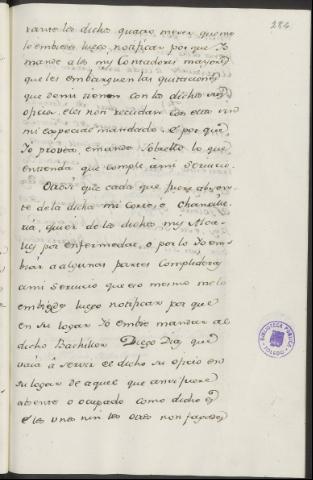 284
rante los dichos quatro meses que me
lo embiedes luego notificar por que Yo
mande a los mis Contadores mayores
que les embarguen las quitaciones
que de mi tienen con los dichos
oficios, e les non recudan con ellas sin
mi especial mandado, e por que
Yo provea, e mande sobrello lo que
entienda que cumple a mi servicio.
Otrosi que cada que fuere absen
te de la dicha mi Corte, e Chancille
ria, quier de los dichos mis Alcal
des por enfermedad, o por lo Yo em
biar a algunas partes complideras
a mi servicio que eso mesmo me lo
embiedes luego notificar por que
en su logar Yo embie mandar al
dicho Bachiller Diego Diaz, que
vaia a servir el dicho su oficio en
su logar de aquel que ansi fuere
absente o ocupado como dicho es
e los unos nin los otros non fagades
BIBLIOTECA PUBLICA
TOLEDO